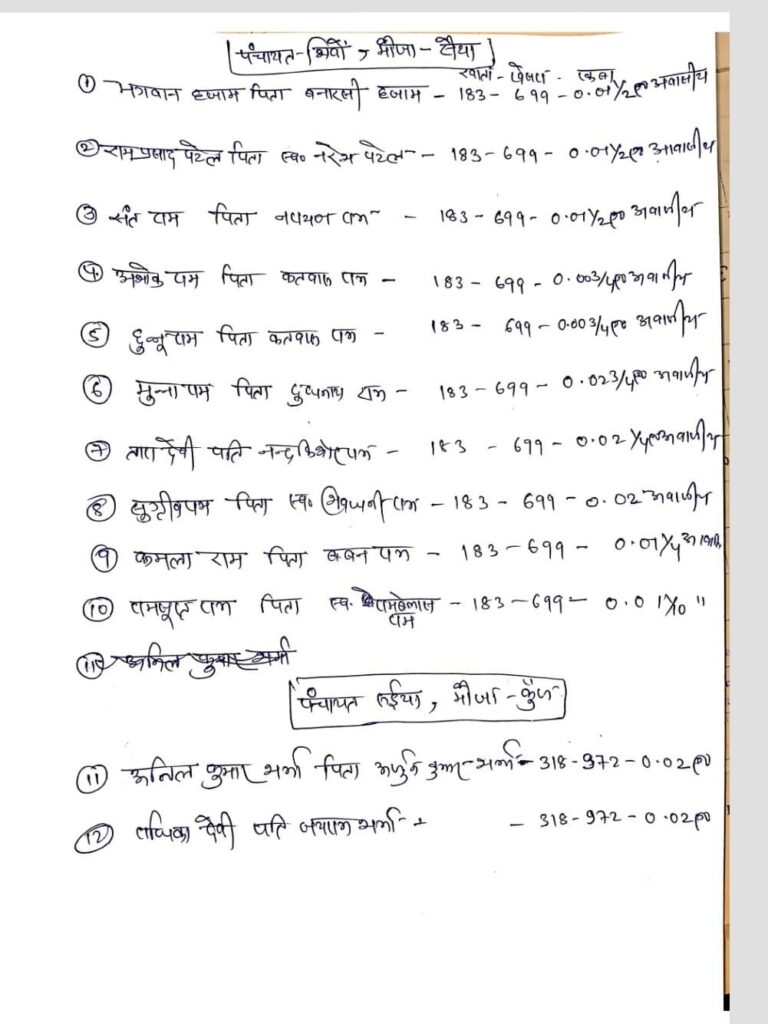 पंचायत - सेवों, मौजा - टोया
खाता - खेसरा - रकबा
① भगवान हजाम पिता बनारसी हजाम - 183 - 699 - 0.01 1/2 ए० अवासीय
② रामप्रसाद पटेल पिता स्व० नरेश पटेल - 183 - 699 - 0.01 1/2 ए० आवासीय
③ संत राम पिता नारायण राम - 183 - 699 - 0.01 1/2 ए० अवासीय
④ अशोक राम पिता कतवारू राम - 183 - 699 - 0.003/4 ए० अवासीय
⑤ टुन्नू राम पिता कतवारू राम - 183 - 699 - 0.003/4 ए० अवासीय
⑥ मुन्ना राम पिता दुधनाथ राम - 183 - 699 - 0.023/4 ए० अवासीय
⑦ तारा देवी पति नन्दकिशोर राम - 183 - 699 - 0.02 1/4 ए० अवासीय
⑧ सुग्रीव राम पिता स्व० राम - 183 - 699 - 0.02 अवासीय
⑨ कमला राम पिता बबन राम - 183 - 699 - 0.01 1/4
⑩ राम पिता स्व. रामबेलास राम - 183 - 699 - 0.01 1/10 "
⑪ अनिल कुमार शर्मा
पंचायत रूईया, मौजा -
⑪ अनिल कुमार शर्मा पिता अर्जुन कुमार शर्मा - 318 - 972 - 0.02 ए०
⑫ राधिका देवी पति जयराम शर्मा - 318 - 972 - 0.02 ए०